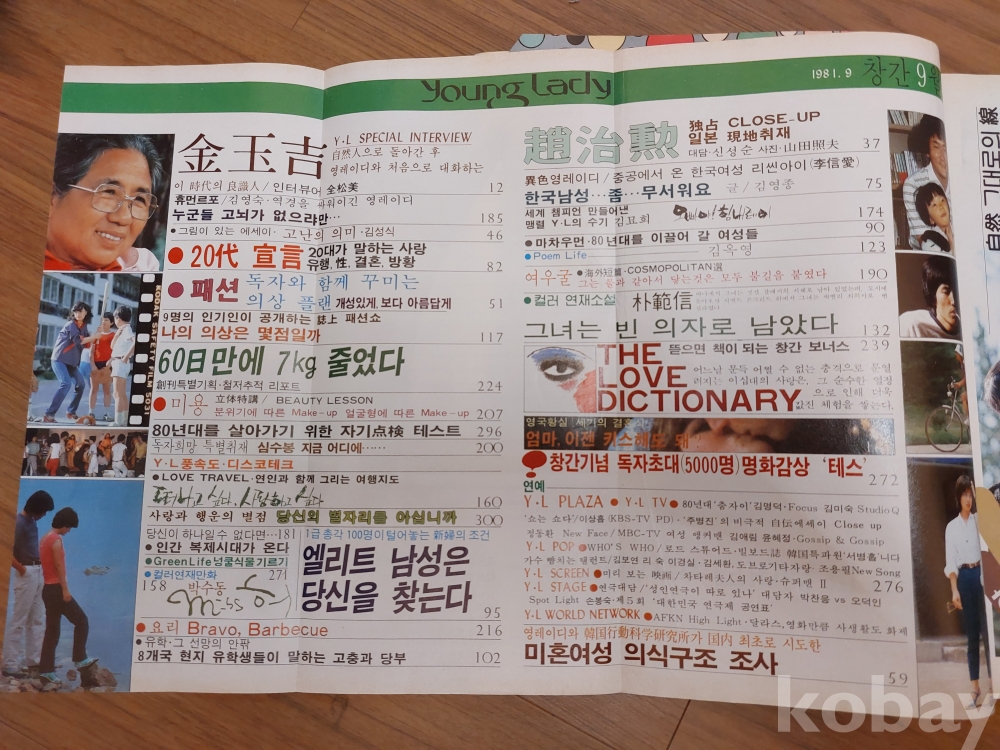 young Lady
1981. 9
창간 9월
金玉吉
Y·L SPECIAL INTERVIEW
自然人으로 돌아간 후
영레이디와 처음으로 대화하는
이 時代의 良識人/인터뷰어 全松美 12
휴먼르포/김영숙·역경을 싸워이긴 영레이디
누군들 고뇌가 없으랴만… 185
●그림이 있는 에세이· 고난의 의미·김성식 46
●20代 宣言 20대가 말하는 사랑
유행, 性, 결혼, 방황 82
●패션 독자와 함께 꾸미는
의상 플랜 개성있게, 보다 아름답게 51
9명의 인기인이 공개하는 誌上 패션쇼
나의 의상은 몇점일까 117
60日만에 7kg 줄었다
創刊특별기획·철저추적 리포트 224
●미용 立体特講/ BEAUTY LESSON
분위기에 따른 Make-up 얼굴형에 따른 Make-up 207
80년대를 살아가기 위한 자기点検 테스트 296
독자희망 특별취재 심수봉 지금 어디에…… 200
Y·L풍속도·디스코테크
●LOVE TRAVEL·연인과 함께 그리는 여행지도
떠나고 싶다, 사랑하고 싶다 160
사랑과 행운의 별점 당신의 별자리를 아십니까 300
당신이 하나일 수 없다면…181
●인간 복제시대가 온다
●Green Life 넝쿨식물기르기 271
●컬러연재만화
158 박수동
1급 총각 100명이 털어놓는 新婦의 조건
엘리트 남성은
당신을 찾는다 95
●요리 Bravo, Barbecue 216
●유학·그 선망의 안팎
8개국 현지 유학생들이 말하는 고충과 당부 102
KODAK SAFETY FILM 5031
趙治勲
独占 CLOSE-UP
일본 現地취재
대담·신성순 사진·山田照夫 37
異色영레이디/중공에서 온 한국여성 리씬아이(李信愛)
한국남성…좀…무서워요 글/김영종 75
세계 챔피언 만들어낸
맹렬 Y·L의 수기 김묘희 174
●마차우먼·80년대를 이끌어 갈 여성들 90
●Poem Life 김옥영 123
여우굴 ●海外短篇·COSMOPOLITAN選
그는 봄과 같아서 닿는것은 모두 불길을 붙였다 190
●컬러 연재소설 朴範信
그녀는 빈 의자로 남았다 132
THE LOVE DICTIONARY
뜯으면 책이 되는 창간 보너스 239
어느날 문득 어쩔 수 없는 충격으로 문열
려지는 이십대의 사랑은, 그 순수한 열정
으로 인해 더욱
값진 체험을 쌓는다.
영국황실 세기의 결혼
엄마, 이젠 키스해도 돼
창간기념 독자초대(5000명)명화감상 '테스' 272
연예
Y·L PLAZA ● Y·L TV●80년대'춤자이'김명덕·Focus 김미숙 Studio Q
'쇼는 쇼다'/이설흠(KBS-TV PD)·'주병진'의 비극적 自伝에세이 Close up
정동환 New Face/MBC-TV 여성 앵커맨 김애림 윤혜정·Gossip & Gossip
Y·L POP●WHO'S WHO/로드 스튜어드·빌보드誌 韓国특파원'서병흠'니다
New Song
Y·L SCREEN●미리 보는 映画/차타레夫人의 사랑·슈퍼맨 II 276
Y·L STAGE●연극대담/'성인연극이 따로 있나' 대담자 박찬을 vs 오덕인
Spot Light 손봉숙·제5회 '대한민국 연극제 공연표'
Y·L WORLD NETWORK ●AFKN High Light·달라스,영화만큼 사생활도 화제
영레이디와 韓国行動科学研究所가 国内 최초로 시도한
미혼여성 의식구조 조사 59
自然 그대로의 線
kobay